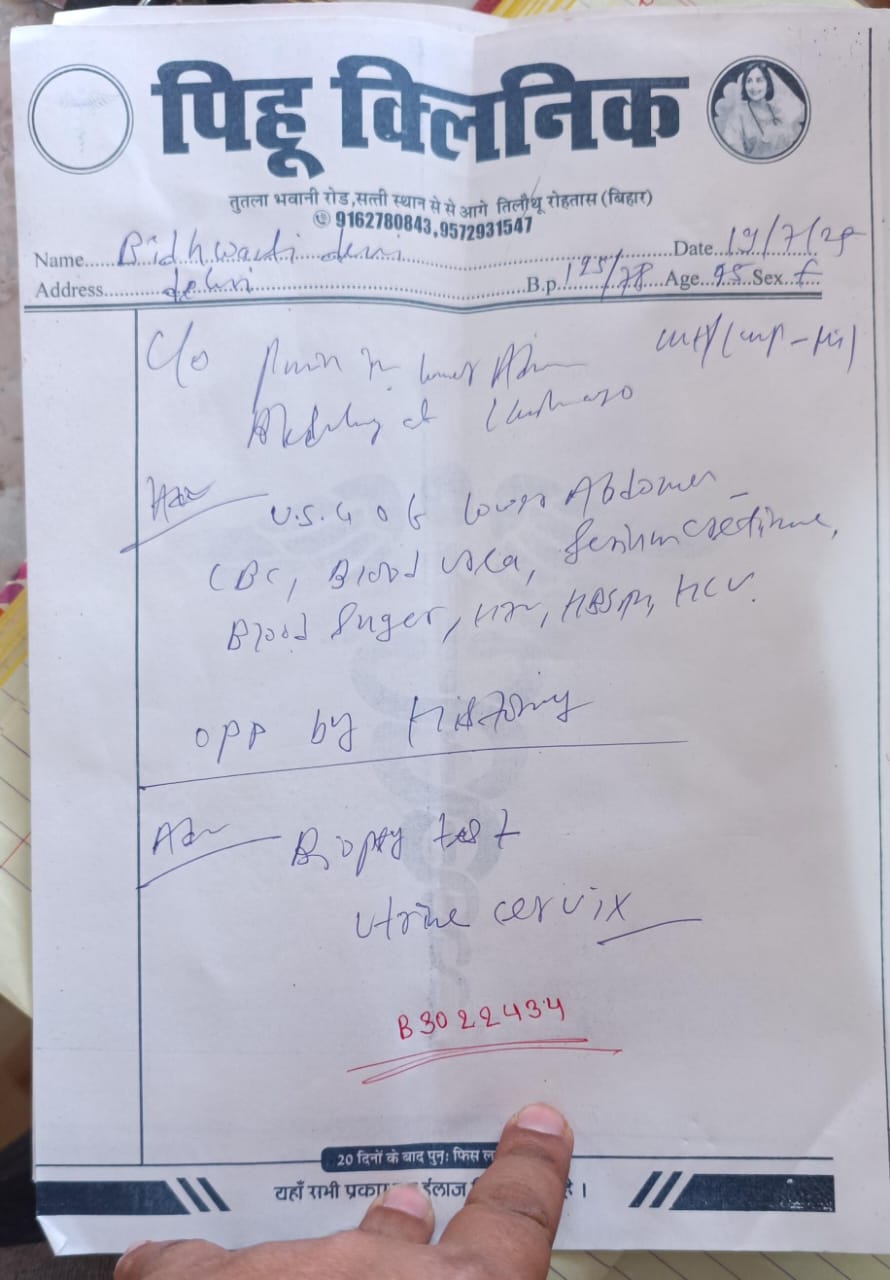 पिहू क्लिनिक
तुतला भवानी रोड,सत्ती स्थान से से आगे तिलौथू रोहतास (बिहार)
9162780843,9572931547
Name Bidhwanti devi Date 19/7/25
Address dehri B.p 125/78 Age Sex f
C/o in lower
at
U.S.G of lower Abdomen
CBC, Blood urea, Serium creatinine,
Blood Suger, HIV, HBSAg, HCV.
opp by History
Adv Biopsy test
utrine cervix
B3022434
20 दिनों के बाद पुनः फिस
यहाँ सभी ईलाज है ।